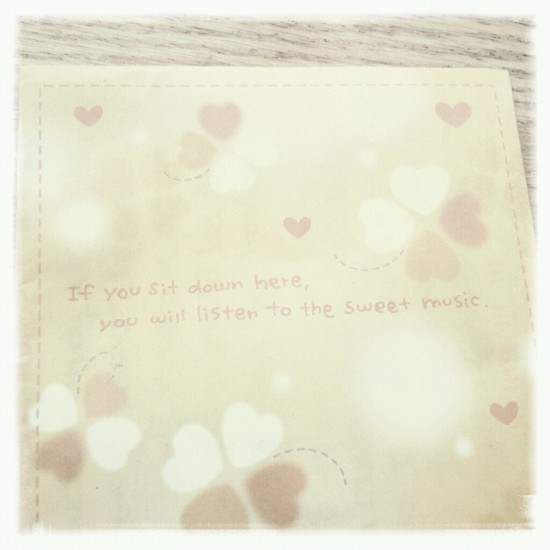 If you sit down here,
you will listen to the sweet music.